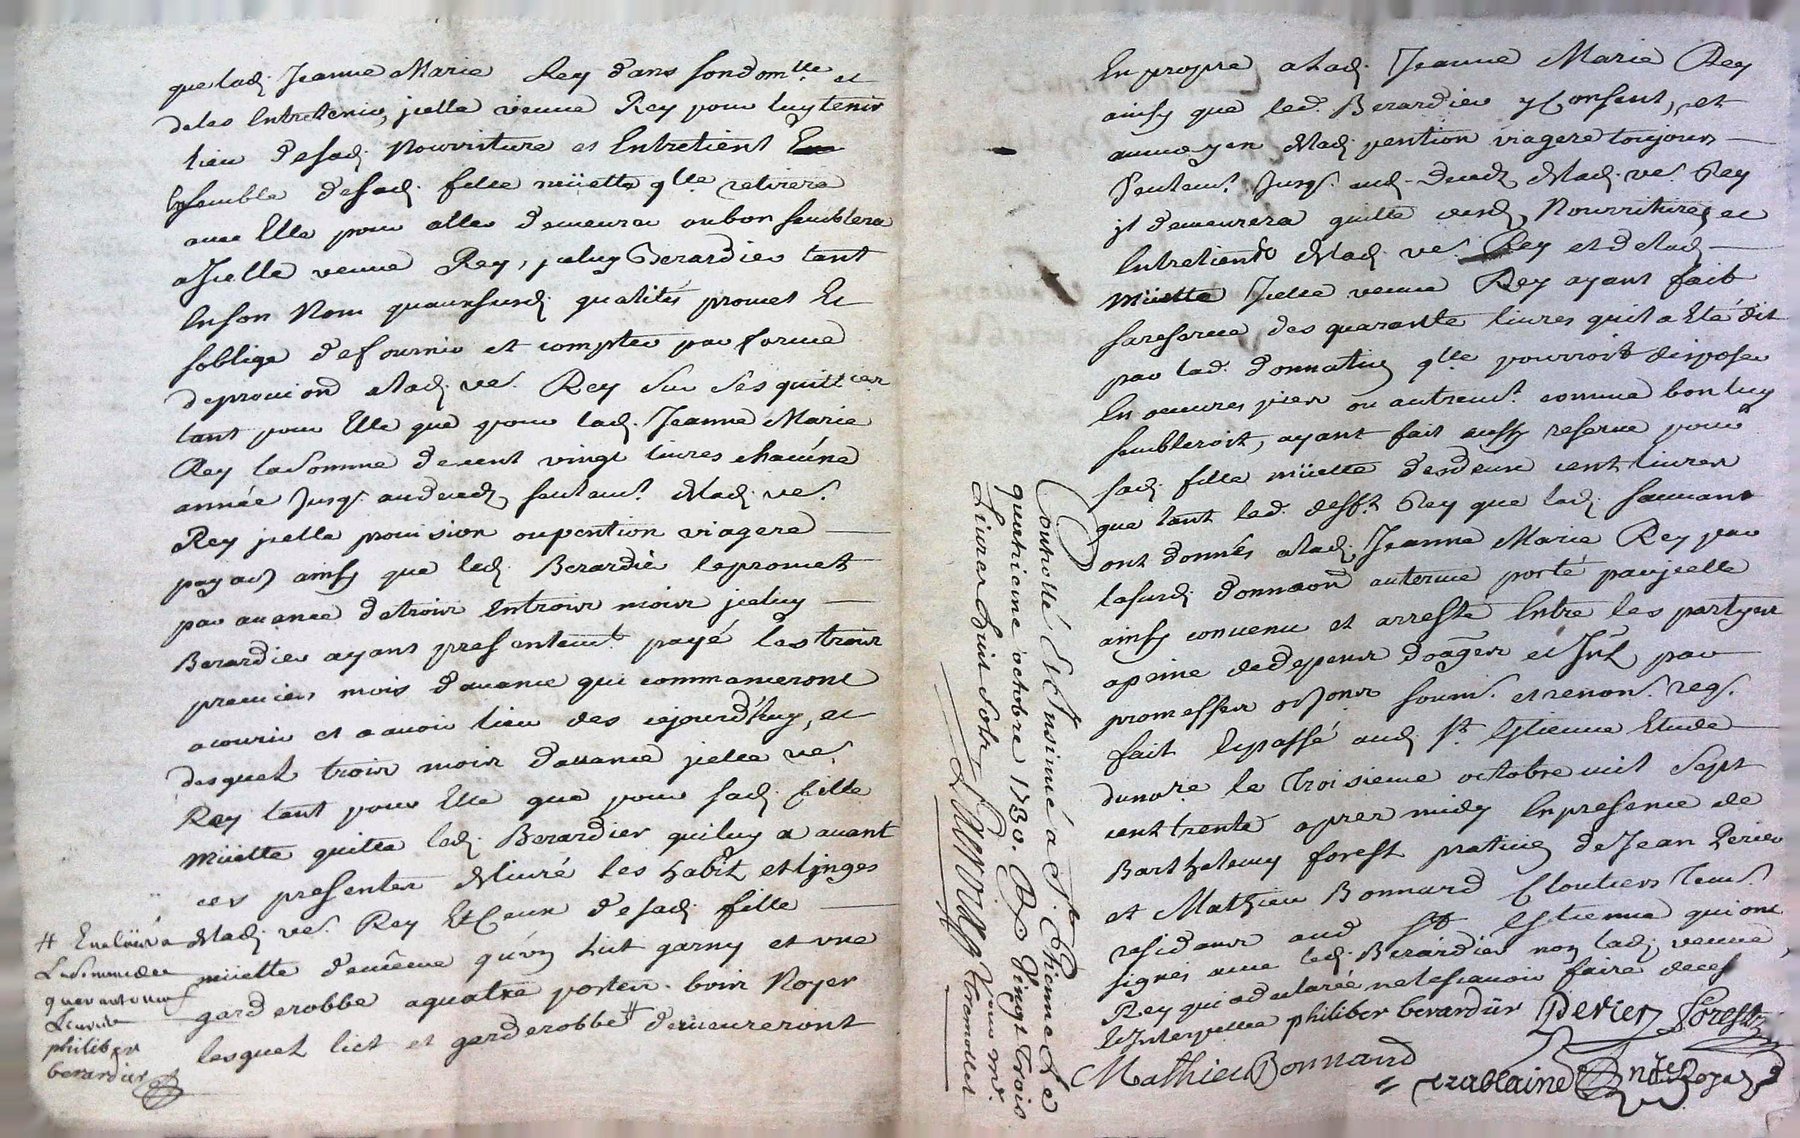 que lad. Jeanne Marie Rey dans son dom.lle et
de les Entretenir, jcelle veuve Rey pour luy tenir
lieu desad. Nourriture et Entretient
Ensemble desad. fille müette q.lle retirera
avec Elle pour aller demeurer ou bon semblera
a Jcelle veuve Rey, jceluy Berardier tant
En son Nom qu'aux susd. qualités promet Et
soblige de fournir et compter par forme
de provi͠on a lad. ve. Rey sur ses quitt.ces
tant pour Elle que pour lad. Jeanne Marie
Rey la somme de cent vingt livres chacüne
année Jusq. au deced. seulem.t de lad. ve.
Rey jcelle provision ou pention viagere
payab. ainsy que led. Berardié le promet
par avance de trois En trois mois jceluy
Berardier ayant presentem.t payé les trois
premiers mois d'avance qui commanceront
a courir et a avoir lieu des cejourd'huy, et
desquels trois mois d'avance jcelle ve.
Rey tant pour Elle que pour sad. fille
müette quitte led. Berardier qui luy a avant
ces presentes délivré les habit et linges
de lad. ve. Rey Et Ceux de sad. fille
müette de même qu'un lict garny et une
garderobbe a quatre portes bois Noyer
lesquels lict et garderobbe # demeureront
# Evalüés a
La somme de
quarante neuf
Livres
philiber
berardier
En propre a lad. Jeanne Marie Rey
ainsy que led. Berardier y Consent, et
au moyen de lad. pention viagere toujours
seulem.t Jusq. aud. deced. de lad. ve. Rey
jl demeurera quitte desd. Nourritures et
Entretients de lad. ve. Rey et de lad.
müette Jcelle veuve Rey ayant fait
sa reserve des quarante livres qu'il a Eté dit
par lad. donnation q.lle pourroit disposer
En oeuvres pies ou autrem.t comme bon luy
sembleroit, ayant fait aussy reserve pour
sad. fille müette des deux cent livres
que tant led. deff.t Rey que lad. Sauvans
ont donnés a lad. Jeanne Marie Rey par
la susd. donna͠on au terme porté par jcelle
ainsy convenu et arresté Entre les partyes
a peine de depens domages et Jnt. par
promesses oblig. soumis. et renons. req.
fait Et passé aud. St. Etienne Etude
du no.re le troisieme octobre mil sept
cent trente apres midy En presence de
Barthelemy forest praticien de Jean Perier
et Mathieu Bonnard Cloutiers tem.
residans aud. St. Estienne qui ont
signés avec led. Berardier non lad. veuve
Rey qui a declarée ne le scavoir faire de ce
Et Interpellée philiber berardier Perier Forest
Mathieu Bonnard
No.re Roya
Controllé Et Insinué a St. Etienne Le
quatrieme octobre 1730. Vingt trois
Livres huit Sols